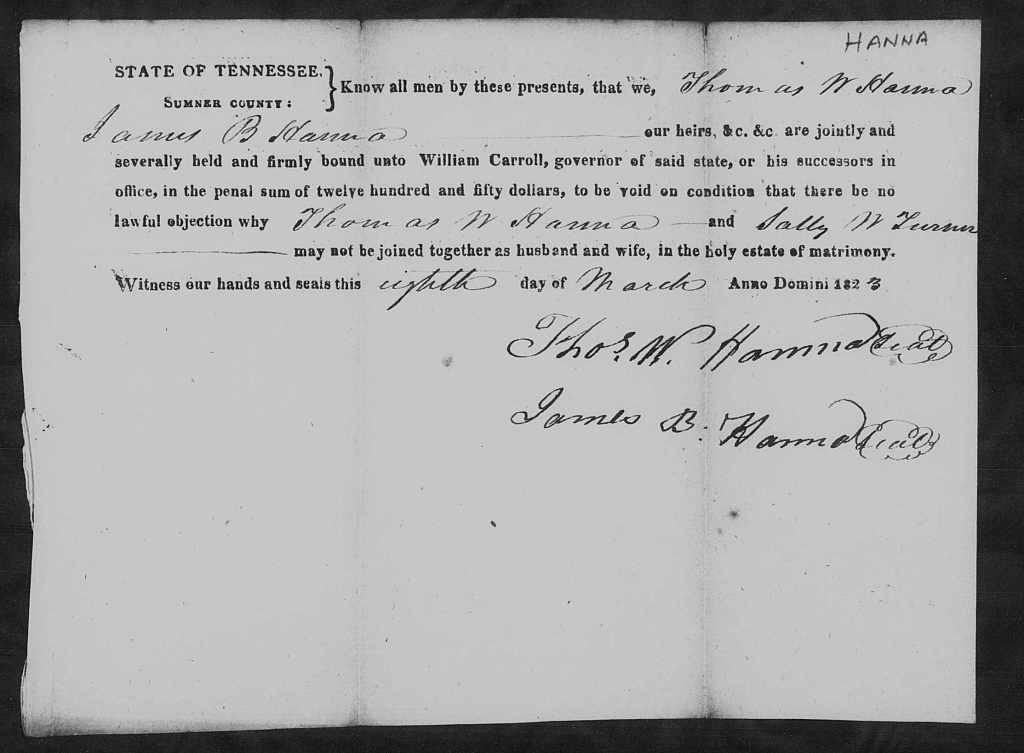 HANNA
STATE OF TENNESSEE, } Know all men by these presents, that we, Thomas W Hanna
SUMNER COUNTY:
James B Hanna our heirs, &c. &c are jointly and
severally held and firmly bound unto William Carroll, governor of said state, or his successors in
office, in the penal sum of twelve hundred and fifty dollars, to be void on condition that there be no
lawful objection why Thomas W Hanna and Sally W Turner
may not be joined together as husband and wife, in the holy estate of matrimony.
Witness our hands and seals this eighth day of March Anno Domini 1823
Thos. W. Hanna Seal
James B. Hanna Seal